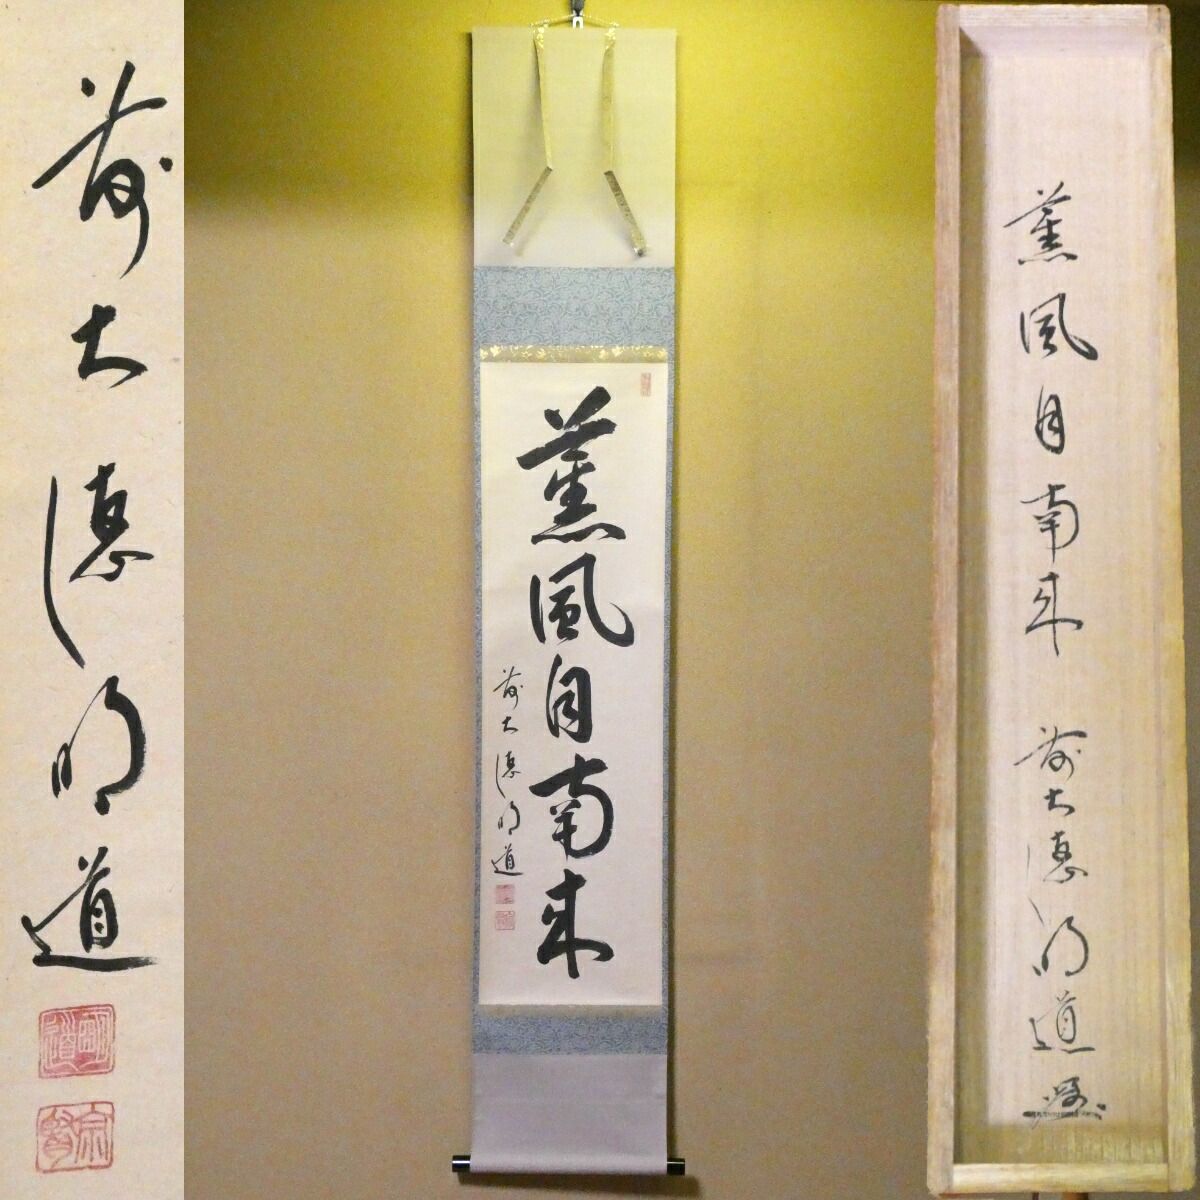 前大德明道
明道
宗賢
薫風自南来
前大德明道
薫風自南来
前大德明道